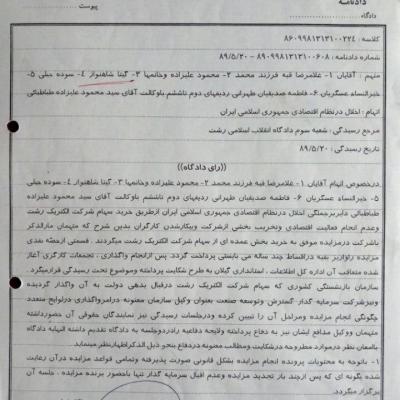 دادنامه
دادگاه
پیوست
کلاسه : ۸۶۰۹۹۸۱۳۱۳۱۰۰۲۲٤
شماره دادنامه : ۸۹۰۹۹۸۱۳۱۳۱۰۰۶۰۸ - ۸۹/۵/۲۰
متهم : آقایان ۱- غلامرضا قبه فرزند محمد ۲- محمود علیزاده وخانمها ۳- گیتا شاهنواز ٤- سوده جبلی ۵-
خیرالنساء عسگریان ۶- فاطمه صدیقیان طهرانی ردیفهای دوم تاششم باوکالت آقای سید محمود علیزاده طباطبائی
اتهام : اخلال درنظام اقتصادی جمهوری اسلامی ایران
مرجع رسیدگی : شعبه سوم دادگاه انقلاب اسلامی رشت
تاریخ رسیدگی : ۸۹/۵/۲۰
((رای دادگاه))
درخصوص اتهام آقایان ۱- غلامرضا قبه فرزند محمد ۲- محمود علیزاده وخانمها ۳- گیتا شاهنواز ٤- سوده جبلی
۵- خیرالنساء عسگریان ۶- فاطمه صدیقیان طهرانی ردیفهای دوم تاششم باوکالت آقای سید محمود علیزاده
طباطبائی دایربرجملگی اخلال درنظام اقتصادی جمهوری اسلامی ایران ازطریق خرید سهام شرکت الکتریک رشت
وعدم انجام فعالیت اقتصادی وتخریب بخشی ازشرکت وبیکارشدن کارگران بدین شرح که متهمان مارالذکر
باشرکت درمزایده موفق به خرید بخش عمده ای از سهام شرکت الکتریک رشت میگردند. قسمتی ازحصه نقدی
مزایده راواریز بقیه دراقساط چند ساله می بایستی پرداخت گردد. پس ازانجام واگذاری ، تجمعات کارگری آغاز
شده متعاقب آن اداره کل اطلاعات . استانداری گیلان به طرح شکایت پرداخته وموضوع تحت رسیدگی قرارمیگیرد.
سازمان بازنشستگی کشوری که سهام شرکت الکتریک رشت درقبال بدهی دولت به آن واگذار گردیده
ونیزشرکت سرمایه گذار گسترش وتوسعه صنعت بعنوان وکیل سازمان معنونه درامرواگذاری درلوایح متعدد
چگونگی انجام مزایده ومراحل آن را تبیین کرده ودرجلسات رسیدگی نیز نمایندگان حقوقی آن حضورداشته
متهمان ووکیل مدافع ایشان نیز به دفاع پرداخته ولایحه دفاعیه رادردوجلسه به دادگاه تقدیم داشته النهایه دادگاه
باامعان نظر درموارد مطروحه درشکایت ومطالب معنونه دردفاع بنحو ذیل الذکراظهارنظرمینماید
۱- باتوجه به محتویات پرونده انجام مزایده بشکل قانونی صورت پذیرفته وتمامی قواعد مزایده درآن رعایت
شده بگونه ای که پس ازچند بار تجدید مزایده وعدم اقبال سرمایه گذار تنها باحضور برنده مزایده ، جلسه آن
برگزار میگردد.